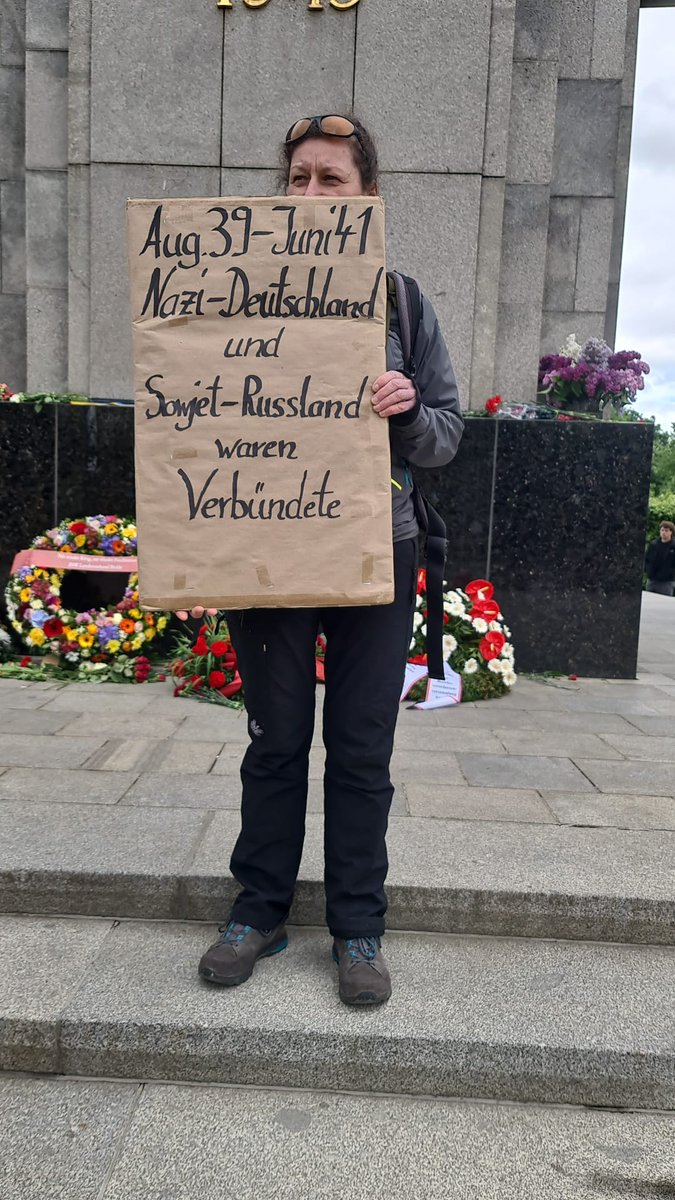 1945
Aug. 39-Juni 41
Nazi-Deutschland
und
Sowjet-Russland
waren
Verbündete